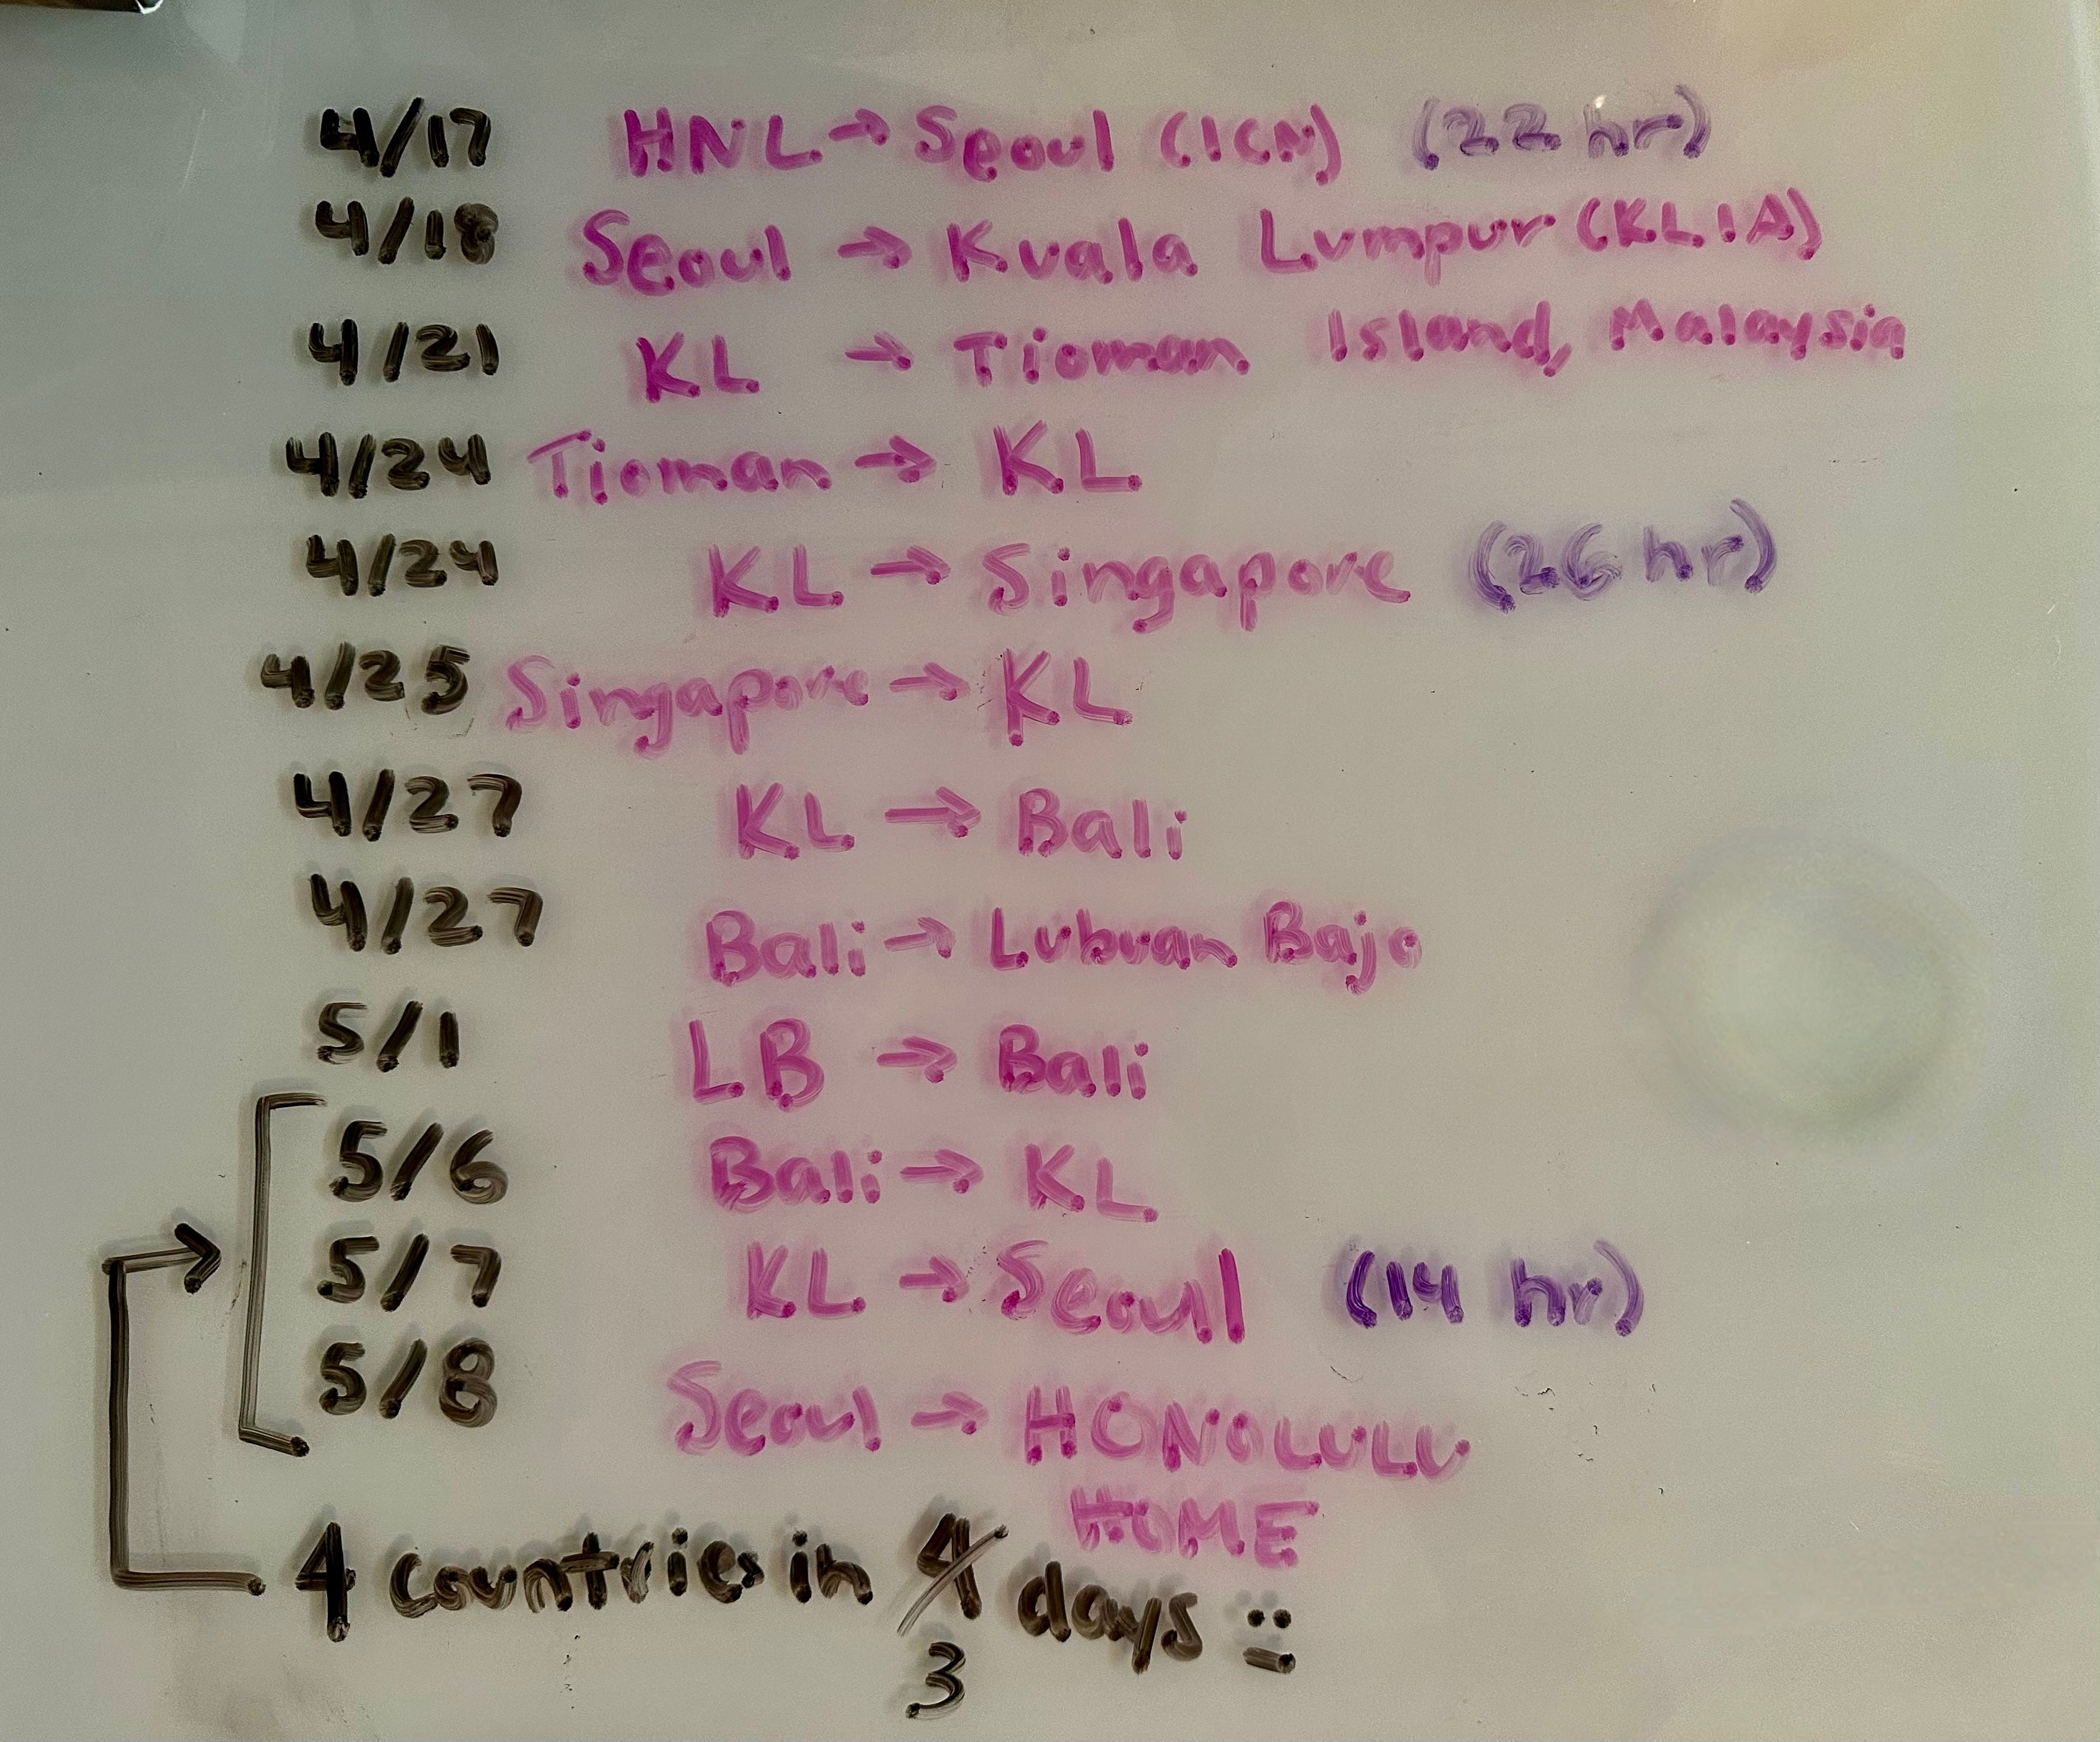 4/17 HNL → Seoul (ICN) (22 hr)
4/18 Seoul → Kuala Lumpur (KLIA)
4/21 KL → Tioman Island, Malaysia
4/24 Tioman → KL
4/24 KL → Singapore (26 hr)
4/25 Singapore → KL
4/27 KL → Bali
4/27 Bali → Lubuan Bajo
5/1 LB → Bali
5/6 Bali → KL
5/7 KL → Seoul (14 hr)
5/8 Seoul → HONOLULU
HOME
4 countries in 4 days :|
3